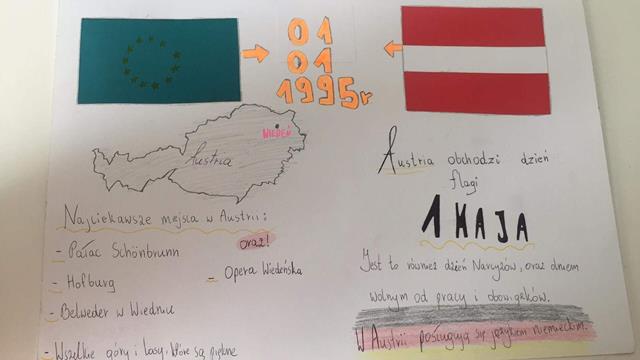 01
01
1995r
WIEDEŃ
Austria
Najciekawsze miejsca w Austrii:
- Pałac Schönbrunn
- Hofburg
- Belweder w Wiedniu
- Wszelkie góry i lasy, które są piękne
oraz!
- Opera Wiedeńska
Austria obchodzi dzień
flagi
1 MAJA
Jest to również dzień Narcyzów, oraz dniem
wolnym od pracy i obowiązków.
W Austrii posługują się językiem niemieckim.